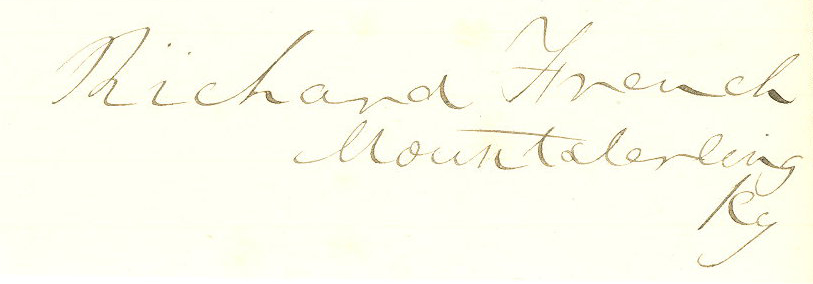 Richard French
Mountsterling
Ky